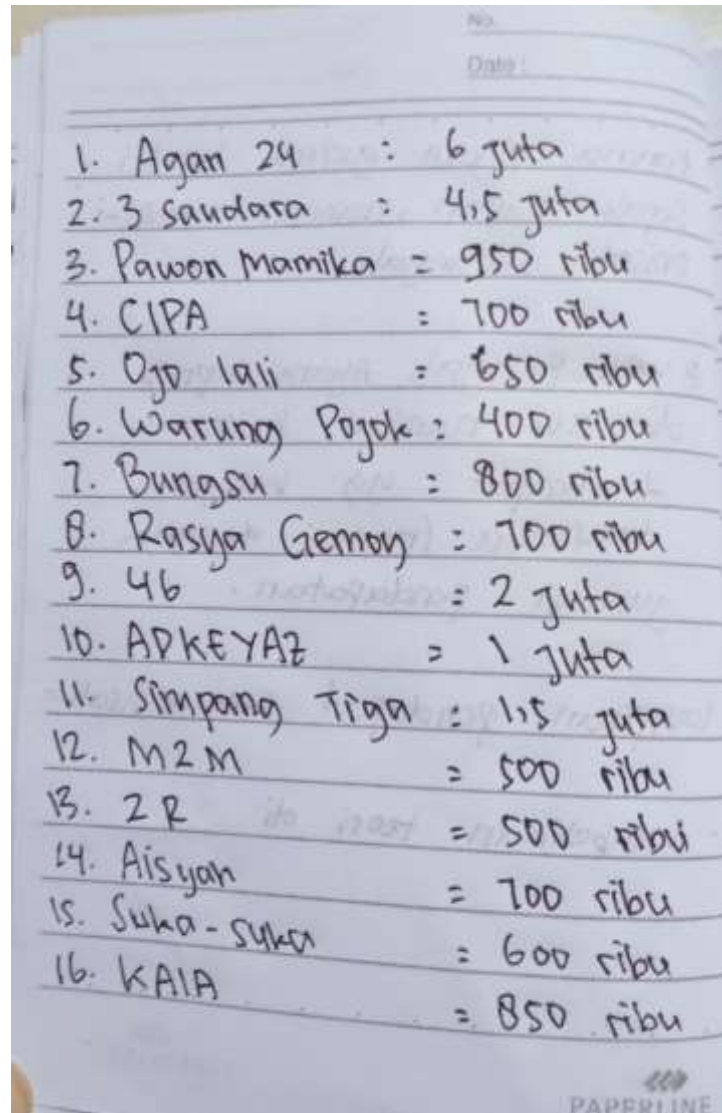 No.
Date :
1. Agan 24 : 6 Juta
2. 3 saudara : 4,5 Juta
3. Pawon Mamika = 950 ribu
4. CIPA : 700 ribu
5. Ojo lali : 650 ribu
6. Warung Pojok : 400 ribu
7. Bungsu : 800 ribu
8. Rasya Gemoy : 700 ribu
9. 46 = 2 Juta
10. ADKEYAZ = 1 Juta
11. Simpang Tiga : 1,5 Juta
12. M2M = 500 ribu
13. 2R = 500 ribu
14. Aisyah = 700 ribu
15. Suka-suka = 600 ribu
16. KAIA = 850 ribu
PAPERLINE